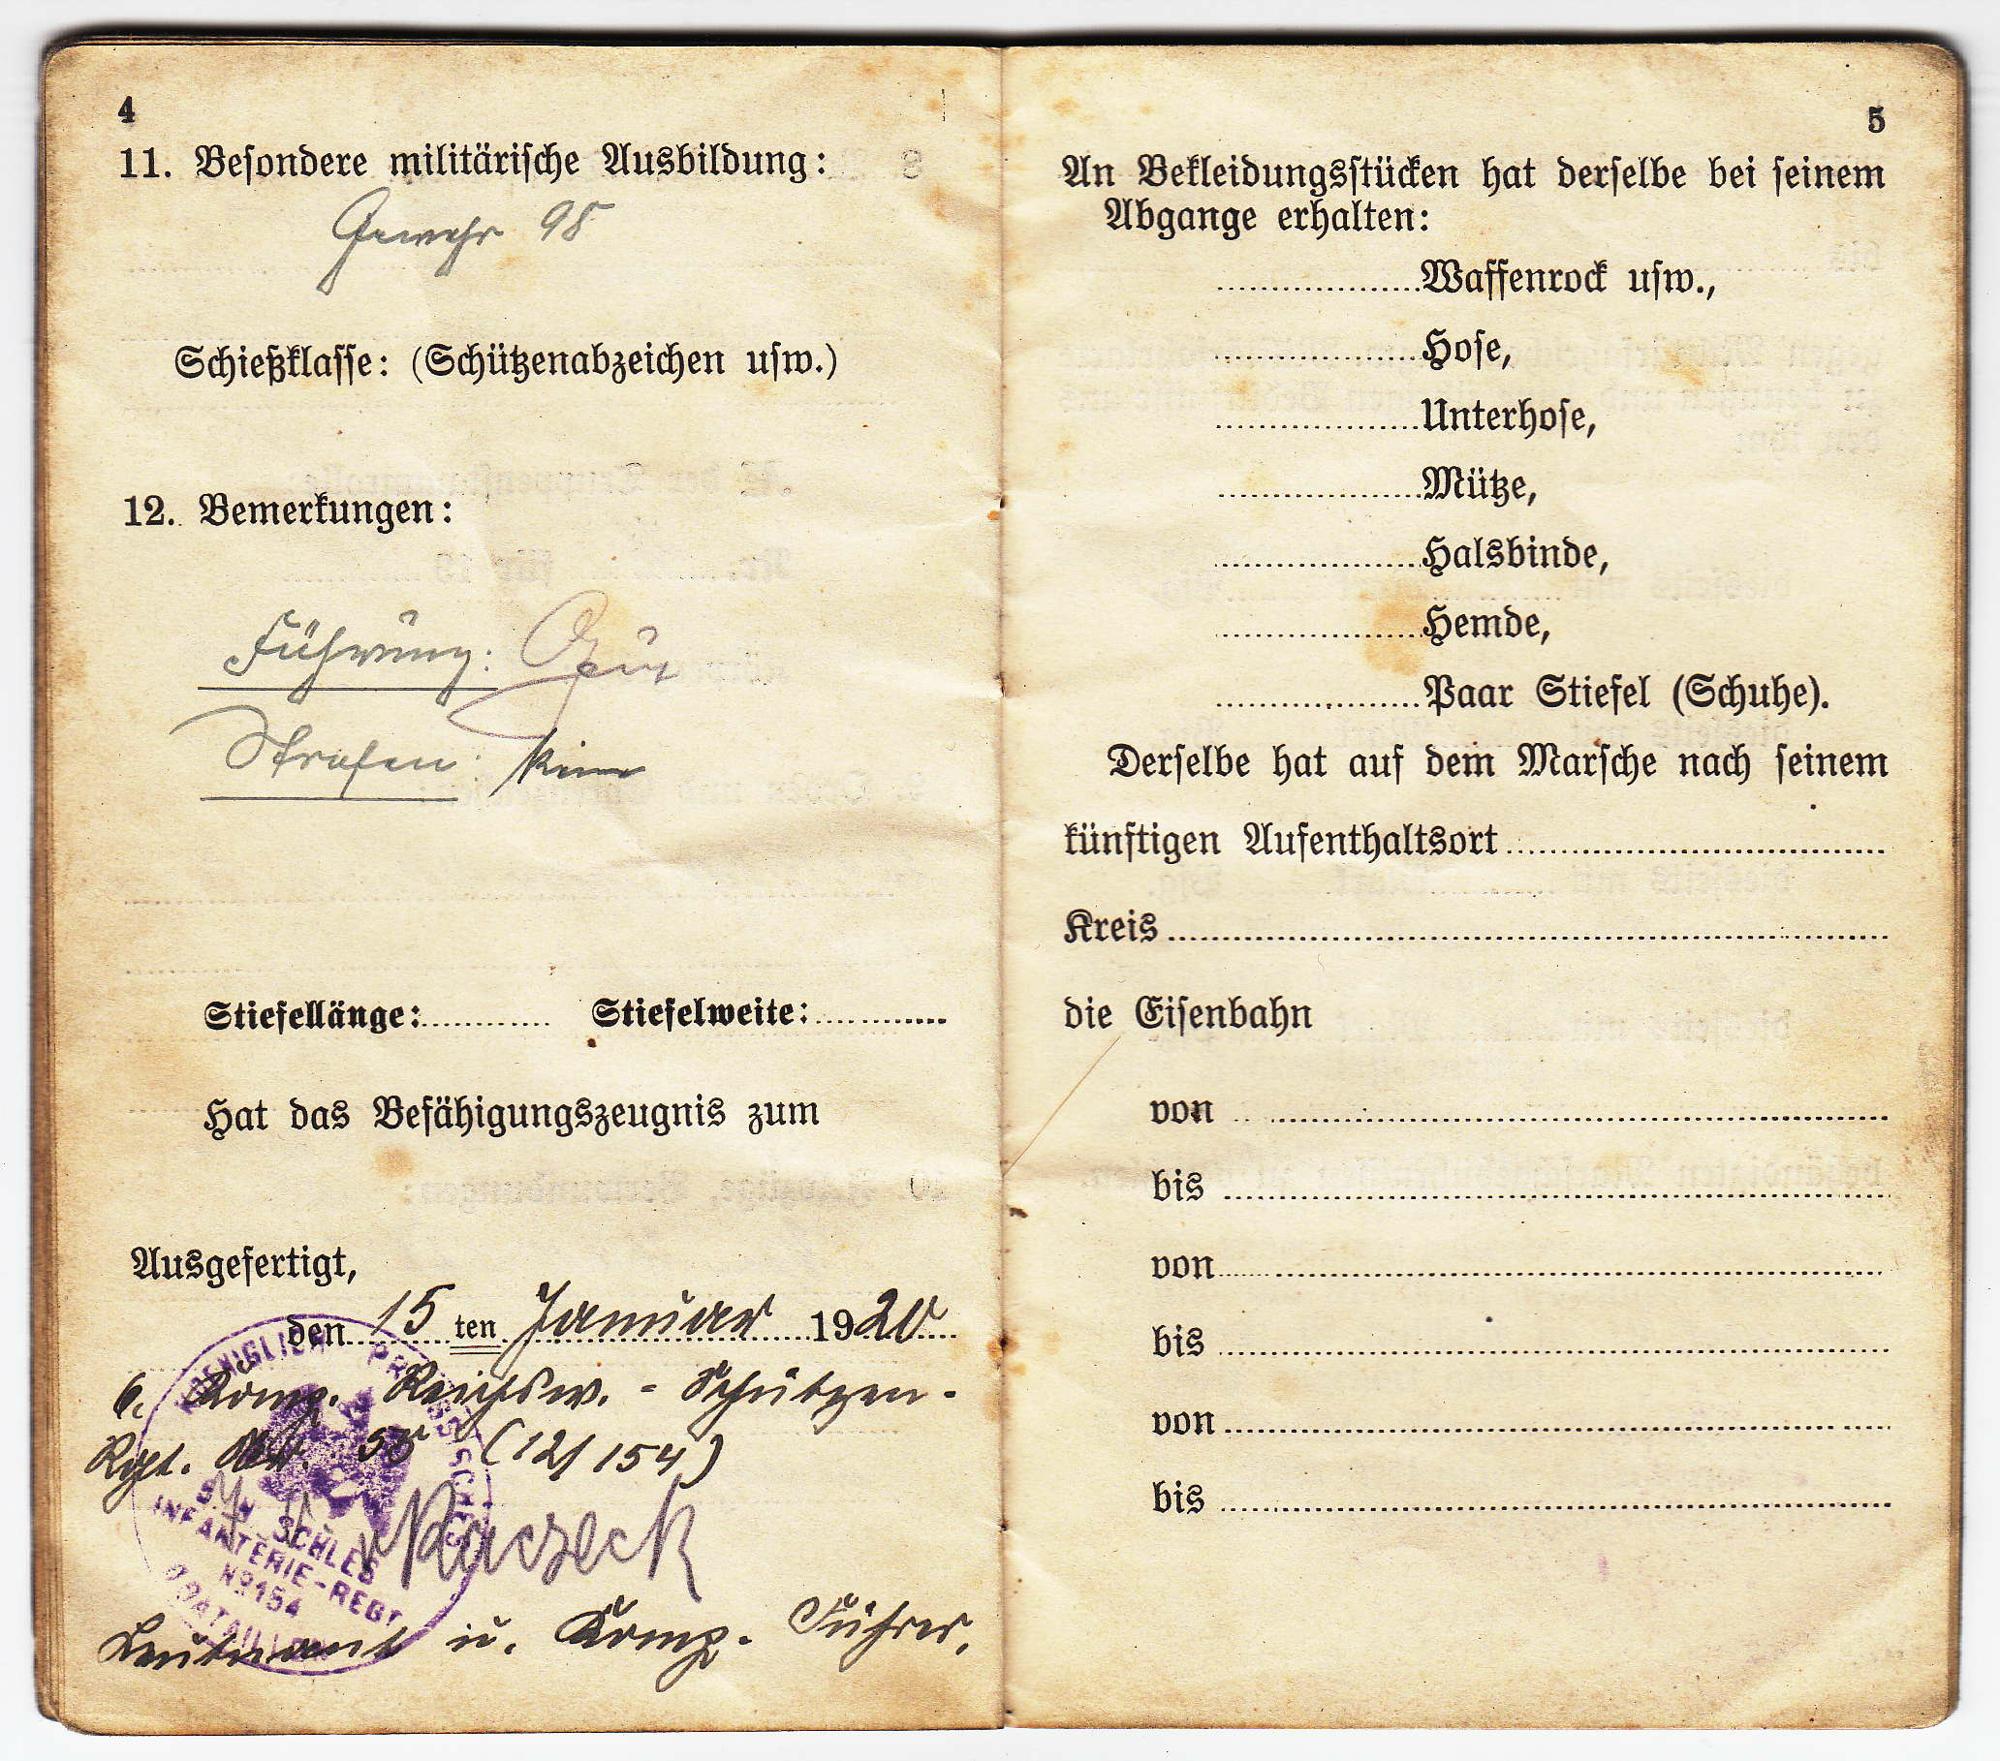 4
11. Besondere militärische Ausbildung:
Gewehr 98
Schießklasse: (Schützenabzeichen usw.)
12. Bemerkungen:
Führung: Gut
Strafen: keine
Stiefellänge: Stiefelweite:
Hat das Befähigungszeugnis zum
Ausgefertigt,
den 15 ten Januar 1920
6. Komp. Reichsw.-Schützen-
Rgt. Nr. 55 (12/154)
Raczeck
Leutnant u. Komp. Führer.
KOENIGLICH PREUSSISCHES
SCHLES
INFANTERIE-REGT
No 154
BATAILLON
5
An Bekleidungsstücken hat derselbe bei seinem
Abgange erhalten:
Waffenrock usw.,
Hose,
Unterhose,
Mütze,
Halsbinde,
Hemde,
Paar Stiefel (Schuhe).
Derselbe hat auf dem Marsche nach seinem
künftigen Aufenthaltsort
Kreis
die Eisenbahn
von
bis
von
bis
von
bis